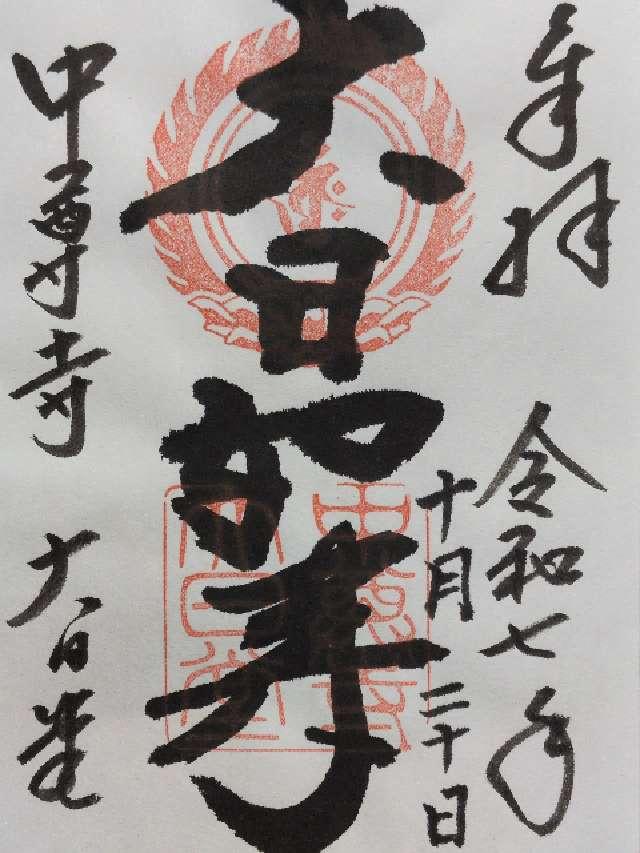 奉拝
令和七年
十月二十日
大日如来
中尊寺 大日堂